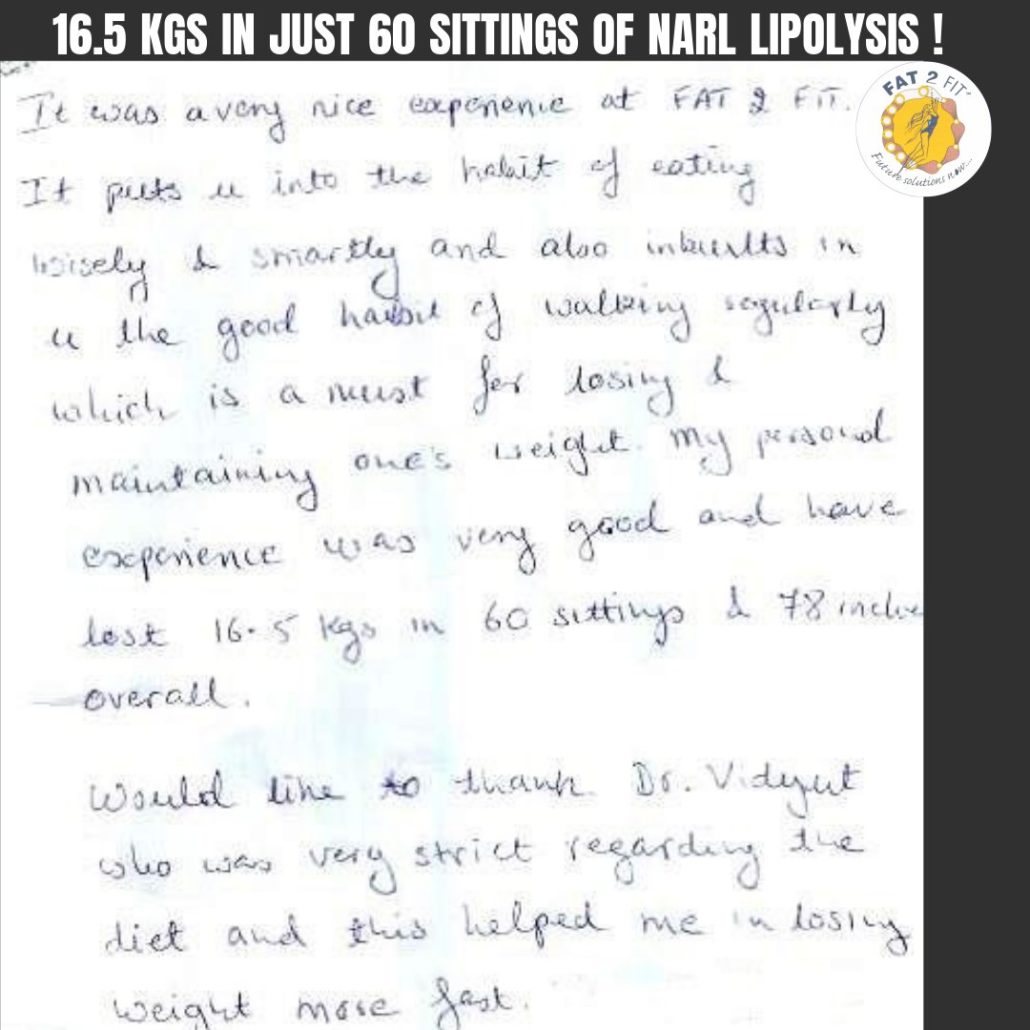 16.5 KGS IN JUST 60 SITTINGS OF NARL LIPOLYSIS !
FAT 2 FIT
Future solutions now...
It was a very nice experience at FAT 2 FIT.
It puts u into the habit of eating
wisely & smartly and also inbuilts in
u the good habit of walking regularly
which is a must for losing &
maintaining one's weight. My personal
experience was very good and have
lost 16.5 kgs in 60 sittings & 78 inche
overall.
Would like to thank Dr. Vidyut
who was very strict regarding the
diet and this helped me in losing
weight more fast.